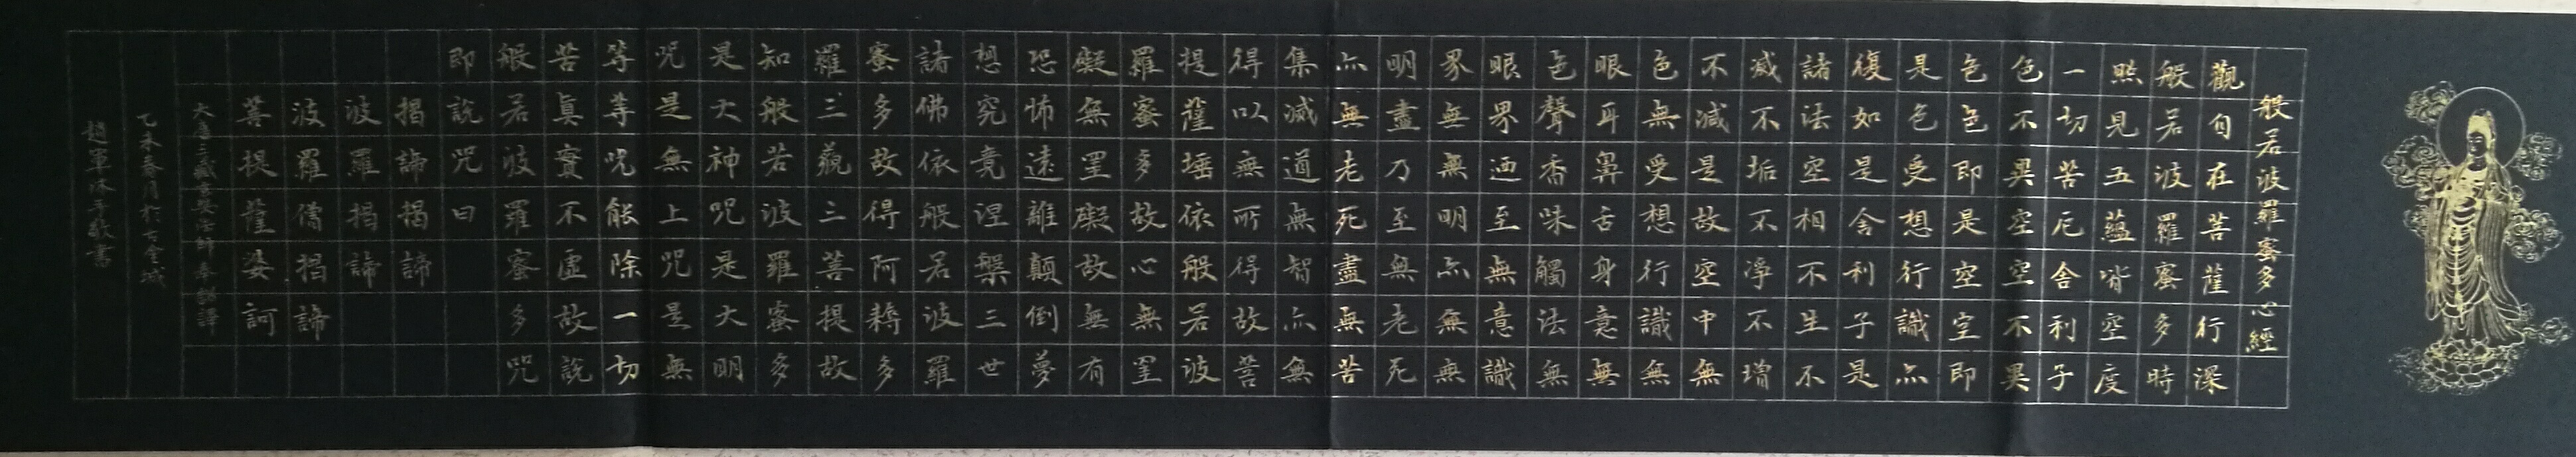 般若波羅蜜多心經
觀自在菩薩行深
般若波羅蜜多時
照見五蘊皆空度
一切苦厄舍利子
色不異空空不異
色色即是空空即
是色受想行識亦
復如是舍利子是
諸法空相不生不
滅不垢不淨不增
不減是故空中無
色無受想行識無
眼耳鼻舌身意無
色聲香味觸法無
眼界迺至無意識
界無無明亦無無
明盡乃至無老死
亦無老死盡無苦
集滅道無智亦無
得以無所得故菩
提薩埵依般若波
羅蜜多故心無罣
礙無罣礙故無有
恐怖遠離顛倒夢
想究竟涅槃三世
諸佛依般若波羅
蜜多故得阿耨多
羅三藐三菩提故
知般若波羅蜜多
是大神咒是大明
咒是無上咒是無
等等咒能除一切
苦真實不虛故說
般若波羅蜜多咒
即說咒曰
揭諦揭諦
波羅揭諦
波羅僧揭諦
菩提薩婆訶
大唐三藏玄奘法師奉詔譯
乙未春月於古金城
趙軍沐手敬書